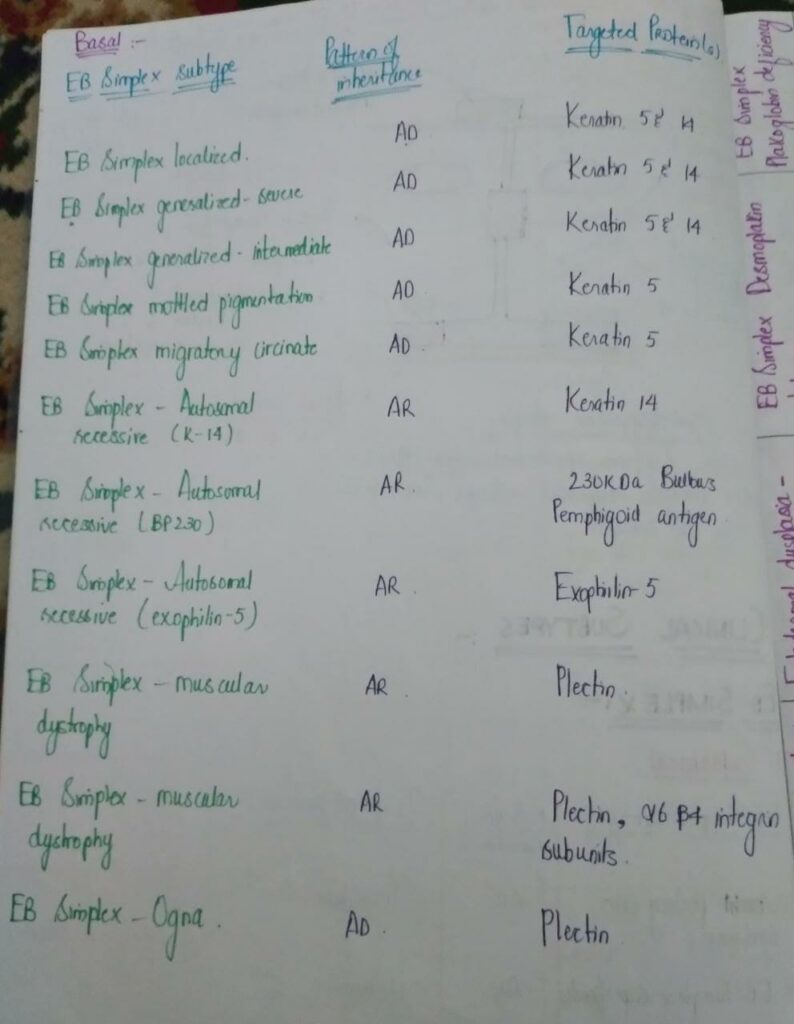 Basal :-
EB Simplex subtype
Pattern of
inheritance
Targeted Protein(s)
EB Simplex localized.
AD
Keratin 5 & 14
EB Simplex generalized - severe
AD
Keratin 5 & 14
EB Simplex generalized - intermediate
AD
Keratin 5 & 14
EB Simplex mottled pigmentation
AD
Keratin 5
EB Simplex migratory circinate
AD
Keratin 5
EB Simplex - Autosomal
recessive (K-14)
AR
Keratin 14
EB Simplex - Autosomal
recessive (BP230)
AR.
230KDa Bullous
Pemphigoid antigen
EB Simplex - Autosomal
recessive (exophilin-5)
AR
Exophilin-5
EB Simplex - muscular
dystrophy
AR
Plectin.
EB Simplex - muscular
dystrophy
AR
Plectin, α6 β4 integrin
subunits.
EB Simplex - Ogna.
AD.
Plectin
EB Simplex
Plakoglobin deficiency
EB Simplex Desmoplakin
dysplasia -